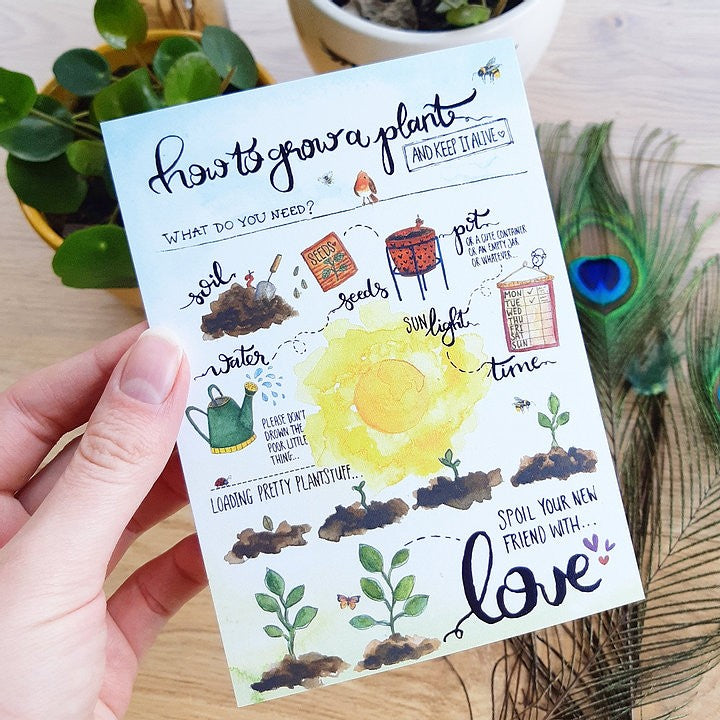 how to grow a plant
AND KEEP IT ALIVE ♡
WHAT DO YOU NEED?
soil
SEEDS
seeds
pot
OR A CUTE CONTAINER
OR AN EMPTY JAR
OR WHATEVER...
water
SUNlight
MON
TUE
WED
THU
FRI
SAT
SUN
time
PLEASE DON'T
DROWN THE
POOR LITTLE
THING...
LOADING PRETTY PLANTSTUFF...
SPOIL YOUR NEW
FRIEND WITH...
love